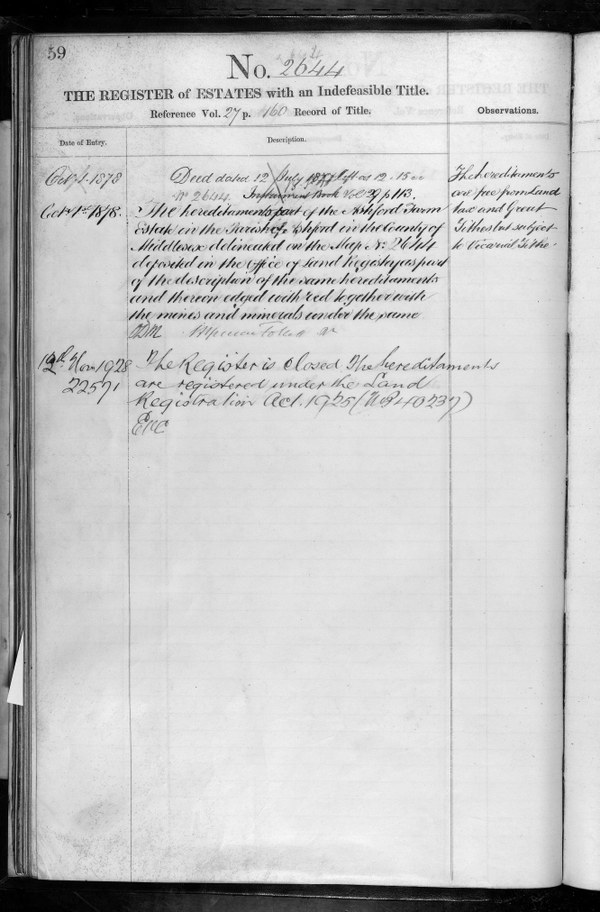 59
No. 2644
THE REGISTER of ESTATES with an Indefeasible Title.
Reference Vol. 27 p. 160 Record of Title.
Observations.
Date of Entry.
Description.
Oct 1 1878
Deed dated 12 July left at 12.15
No 2644. Instrument Book p 113.
Oct 1st 1878.
The hereditaments part of the Ashford Farm
Estate in the Parish of Ashford in the County of
Middlesex delineated on the Map No. 2644
deposited in the Office of Land Registry as part
of the description of the same hereditaments
and thereon edged with red together with
the mines and minerals under the same
The hereditaments
are free from Land
tax and Great
Tithes but subject
to Vicarial Tithe.
19th Nov. 1928
22571
The Register is closed The hereditaments
are registered under the Land
Registration Act. 1925 (40237)